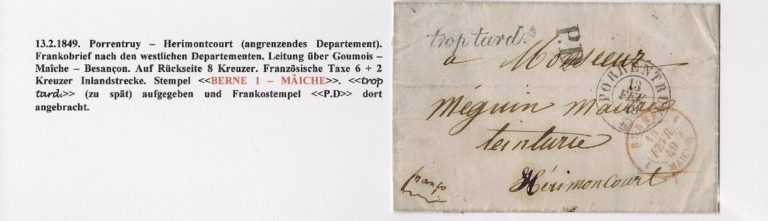 13.2.1849. Porrentruy – Herimontcourt (angrenzendes Departement).
Frankobrief nach den westlichen Departementen. Leitung über Goumois –
Maîche – Besançon. Auf Rückseite 8 Kreuzer. Französische Taxe 6 + 2
Kreuzer Inlandstrecke. Stempel <<BERNE 1 – MÂICHE>>. <<trop
tard.>> (zu spät) aufgegeben und Frankostempel <<P.D>> dort
angebracht.
trop tard.
P.D
à Monsieur
PORRENTRUY
13
FEV
Méguin Maitre
teinturie
Hérimoncourt
franco